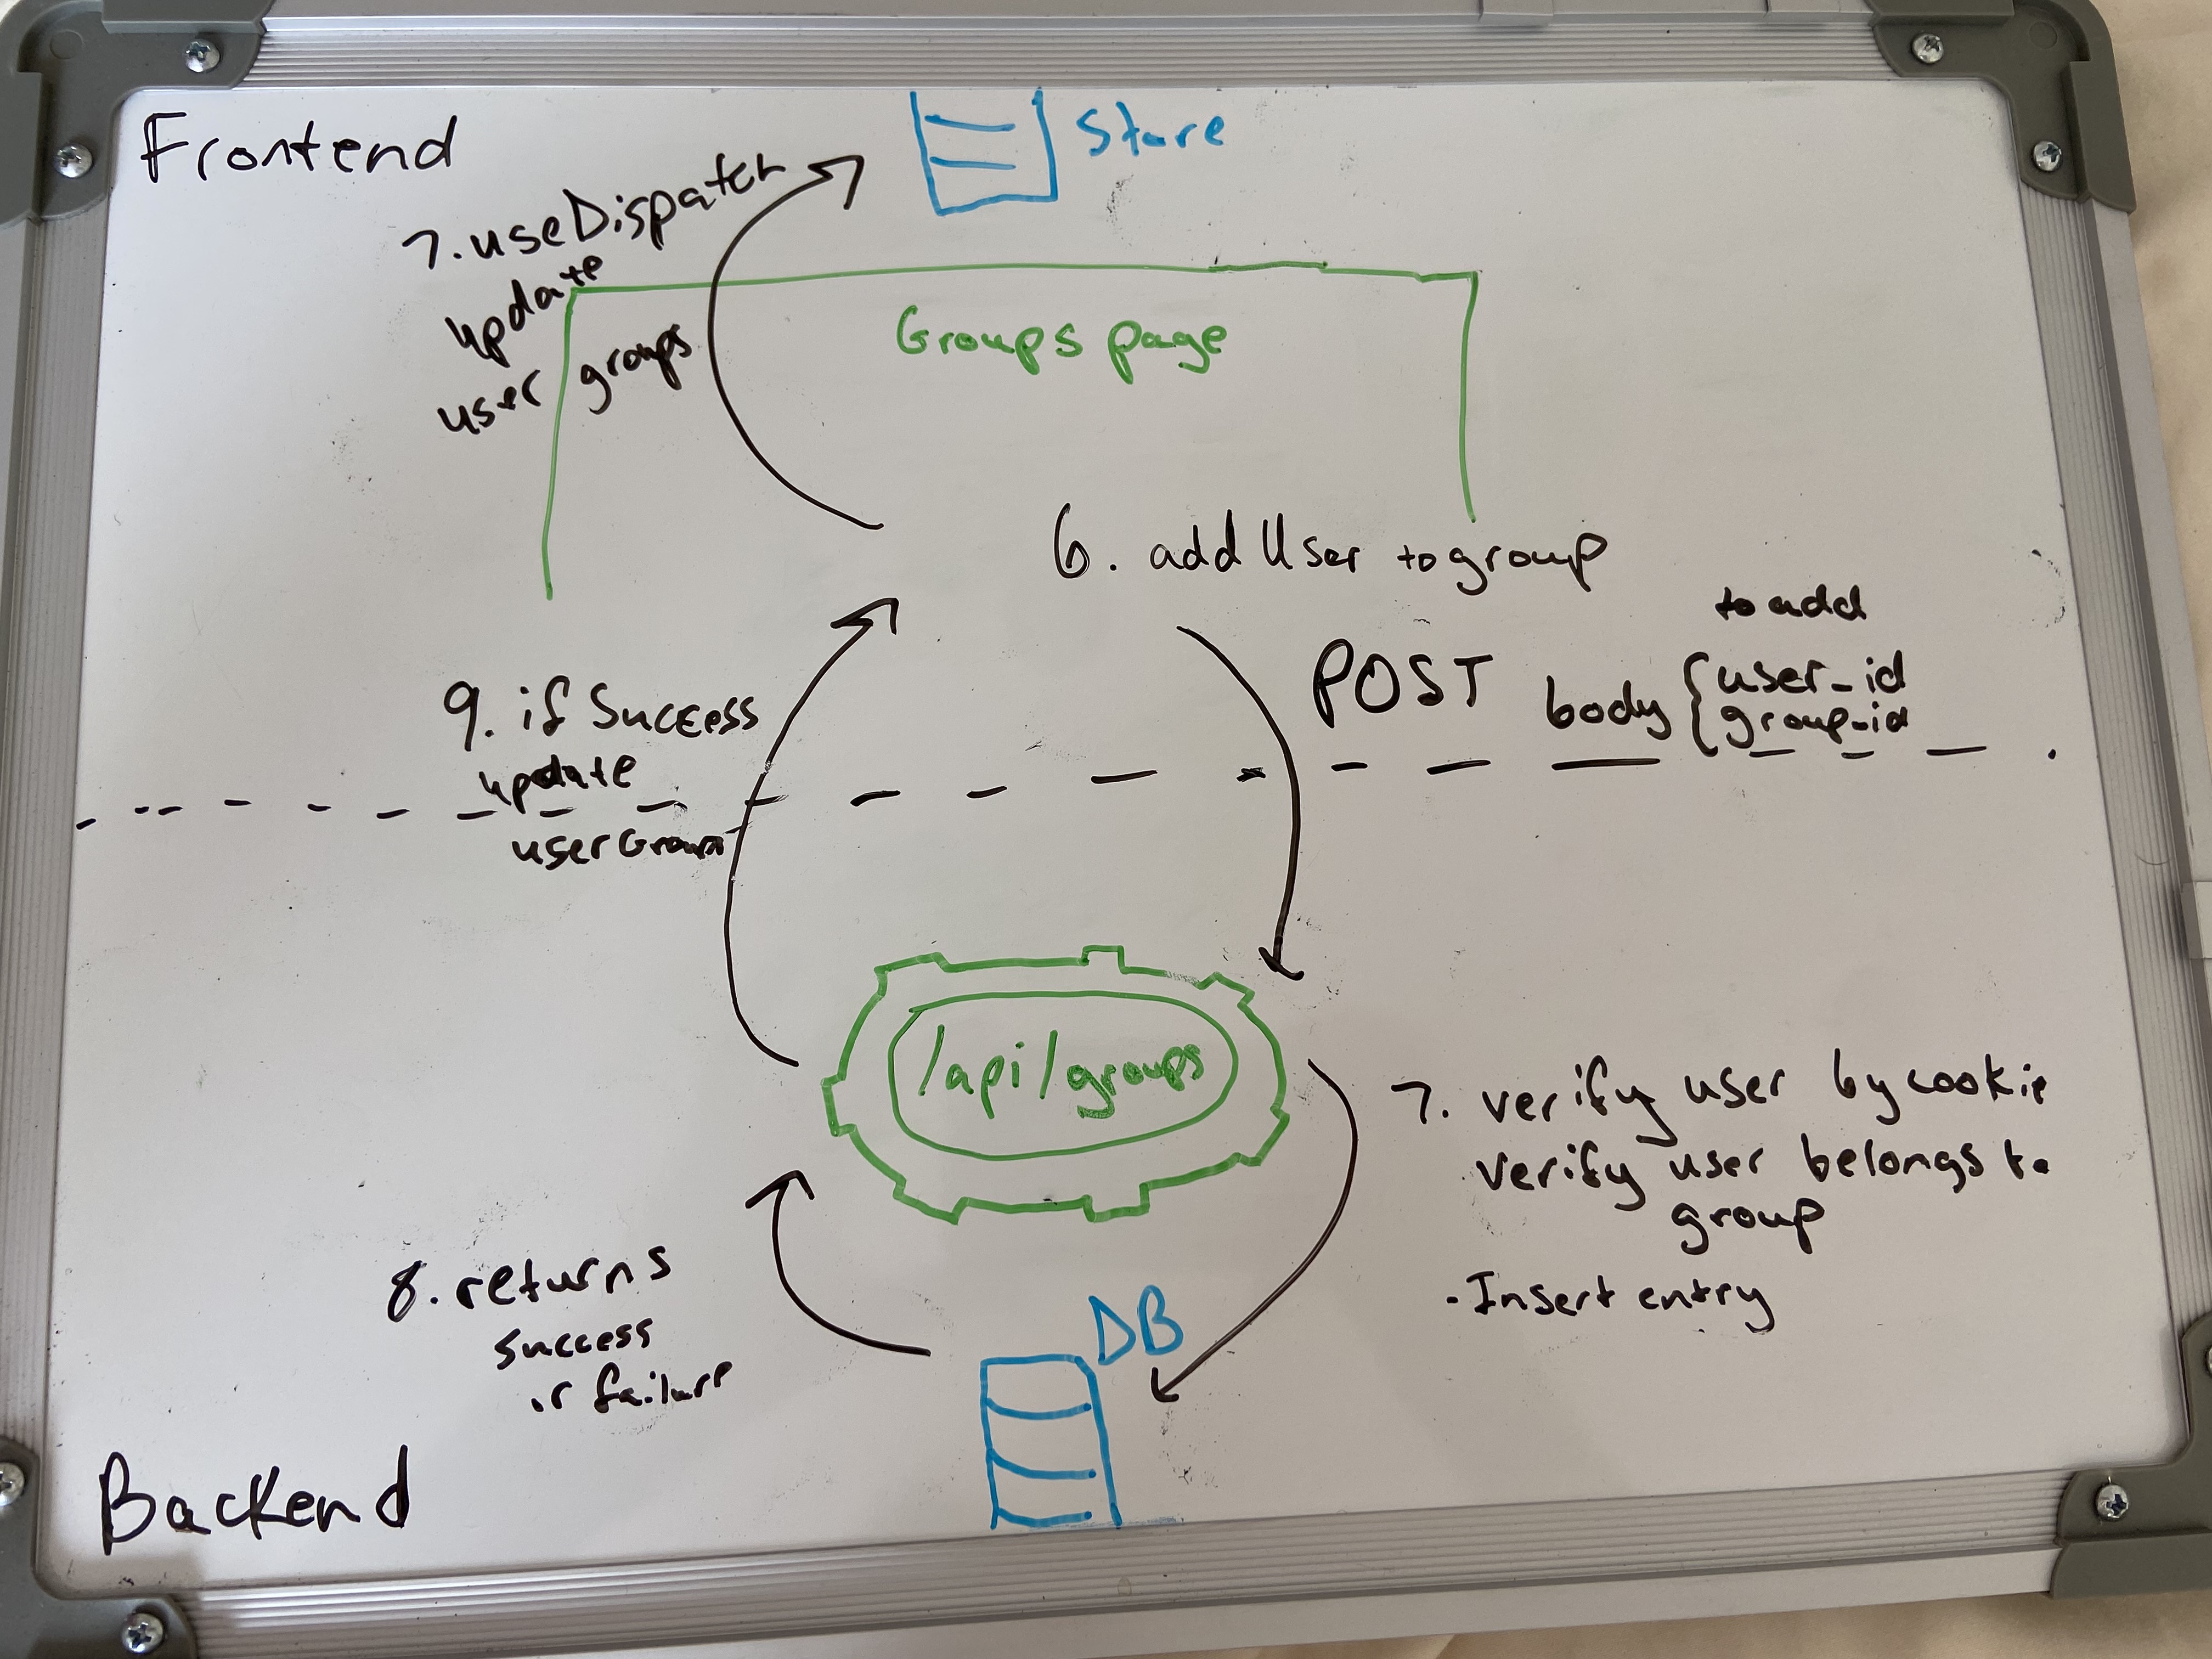 Frontend
Store
7. useDispatch
update
user groups
Groups page
6. add User to group
POST body { to add
user_id
group_id
9. if Success
update
/api/groups
7. verify user by cookie
verify user belongs to
group
- Insert entry
8. returns
success
or failure
DB
Backend